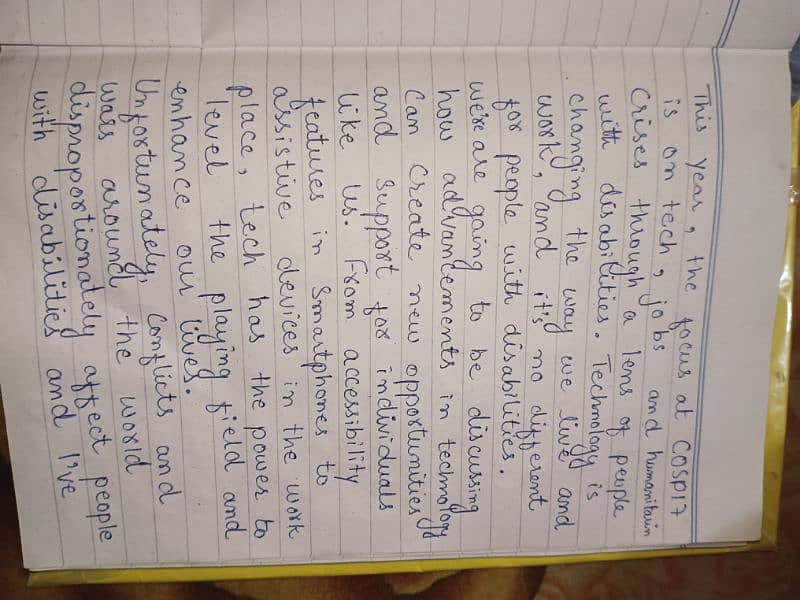 This year, the focus at COSP17
is on tech, jobs and humanitain
Crises through a lens of people
with disabilities. Technology is
changing the way we live and
work, and it's no different
for people with disabilities.
we're are going to be discussing
how advancements in technology
can create new opportunities
and support for individuals
like us. From accessibility
features in smartphones to
assistive devices in the work
place, tech has the power to
level the playing field and
enhance our lives.
Unfortunately, conflicts and
wars around the world
disproportionately affect people
with disabilities and I've